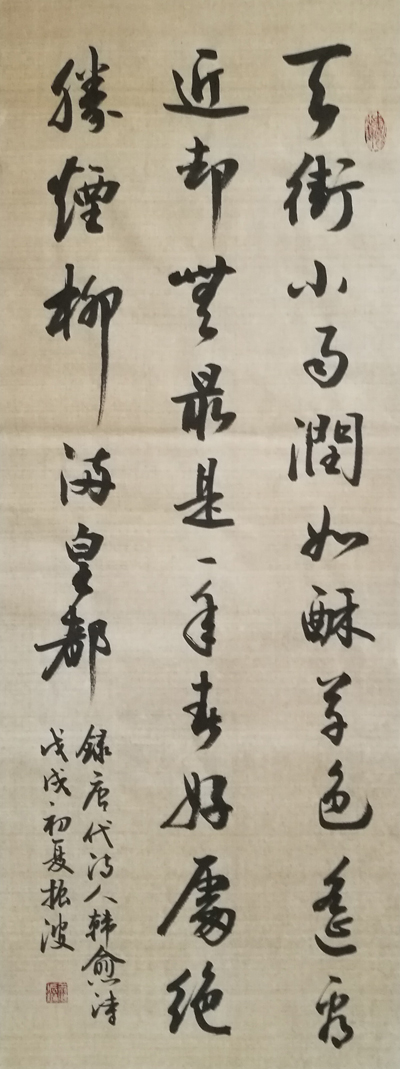 天街小雨潤如酥草色遙看
近却無最是一年春好處絕
勝煙柳滿皇都
錄唐代詩人韩愈詩
戊戌初夏振波